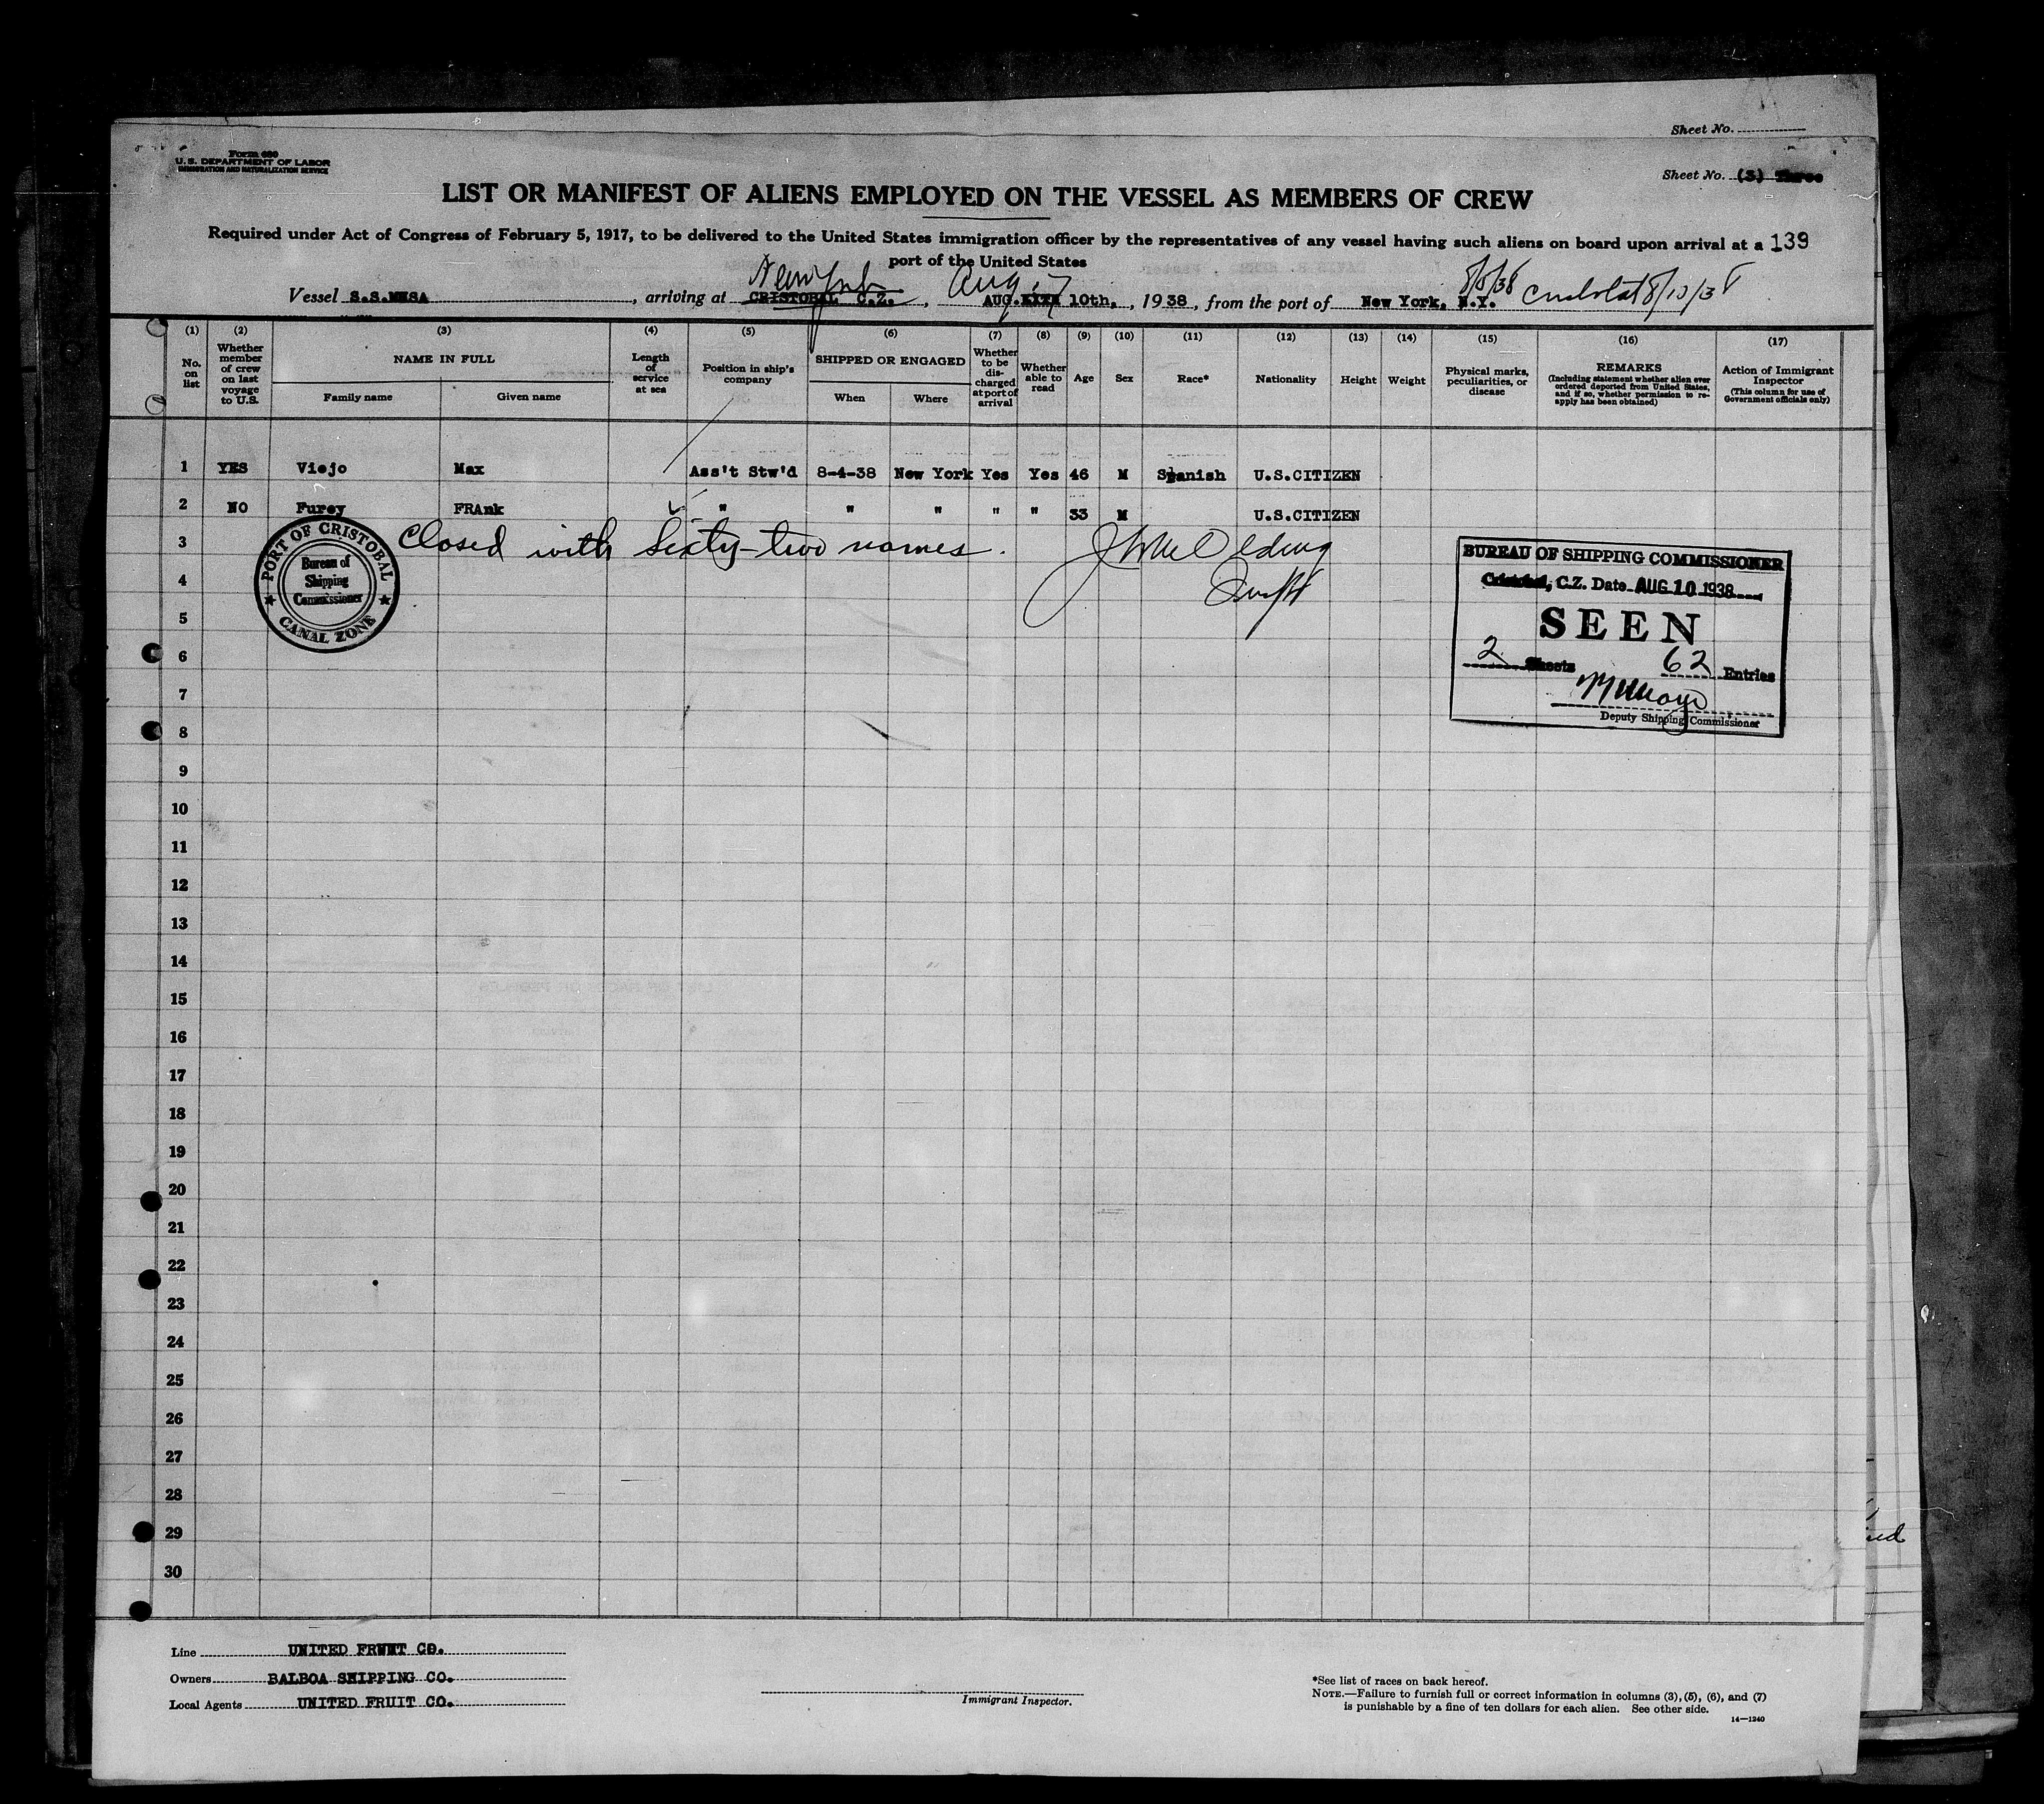 Sheet No.
Form 680
U. S. DEPARTMENT OF LABOR
IMMIGRATION AND NATURALIZATION SERVICE
Sheet No. (3) Three
LIST OR MANIFEST OF ALIENS EMPLOYED ON THE VESSEL AS MEMBERS OF CREW
Required under Act of Congress of February 5, 1917, to be delivered to the United States immigration officer by the representatives of any vessel having such aliens on board upon arrival at a 139
port of the United States
New York Aug. 17 8/5/38
Vessel S.S.MESA, arriving at CRISTOBAL C.Z., AUG. 10th, 1938, from the port of New York, N.Y. Cristobal 8/10/38
(1) (2) (3) (4) (5) (6) (7) (8) (9) (10) (11) (12) (13) (14) (15) (16) (17)
No. on list
Whether member of crew on last voyage to U.S.
NAME IN FULL
Family name Given name
Length of service at sea
Position in ship's company
SHIPPED OR ENGAGED
When Where
Whether to be discharged at port of arrival
Whether able to read
Age
Sex
Race*
Nationality
Height
Weight
Physical marks, peculiarities, or disease
REMARKS
(Including statement whether alien ever ordered deported from United States, and if so, whether permission to reapply has been obtained)
Action of Immigrant Inspector
(This column for use of Government officials only)
1 YES Viejo Max Ass't Stw'd 8-4-38 New York Yes Yes 46 M Spanish U.S.CITIZEN
2 NO Furey FRAnk " " " " " 33 M U.S.CITIZEN
3 Closed with Sixty-two names.
4
5
6
7
8
9
10
11
12
13
14
15
16
17
18
19
20
21
22
23
24
25
26
27
28
29
30
PORT OF CRISTOBAL
Bureau of
Shipping
Commissioner
CANAL ZONE
BUREAU OF SHIPPING COMMISSIONER
Cristobal, C.Z. Date AUG 10 1938
SEEN
2 Sheets 62 Entries
Deputy Shipping Commissioner
Line UNITED FRUIT CO.
Owners BALBOA SHIPPING CO.
Local Agents UNITED FRUIT CO.
Immigrant Inspector.
*See list of races on back hereof.
NOTE.—Failure to furnish full or correct information in columns (3), (5), (6), and (7)
is punishable by a fine of ten dollars for each alien. See other side.
14—1240